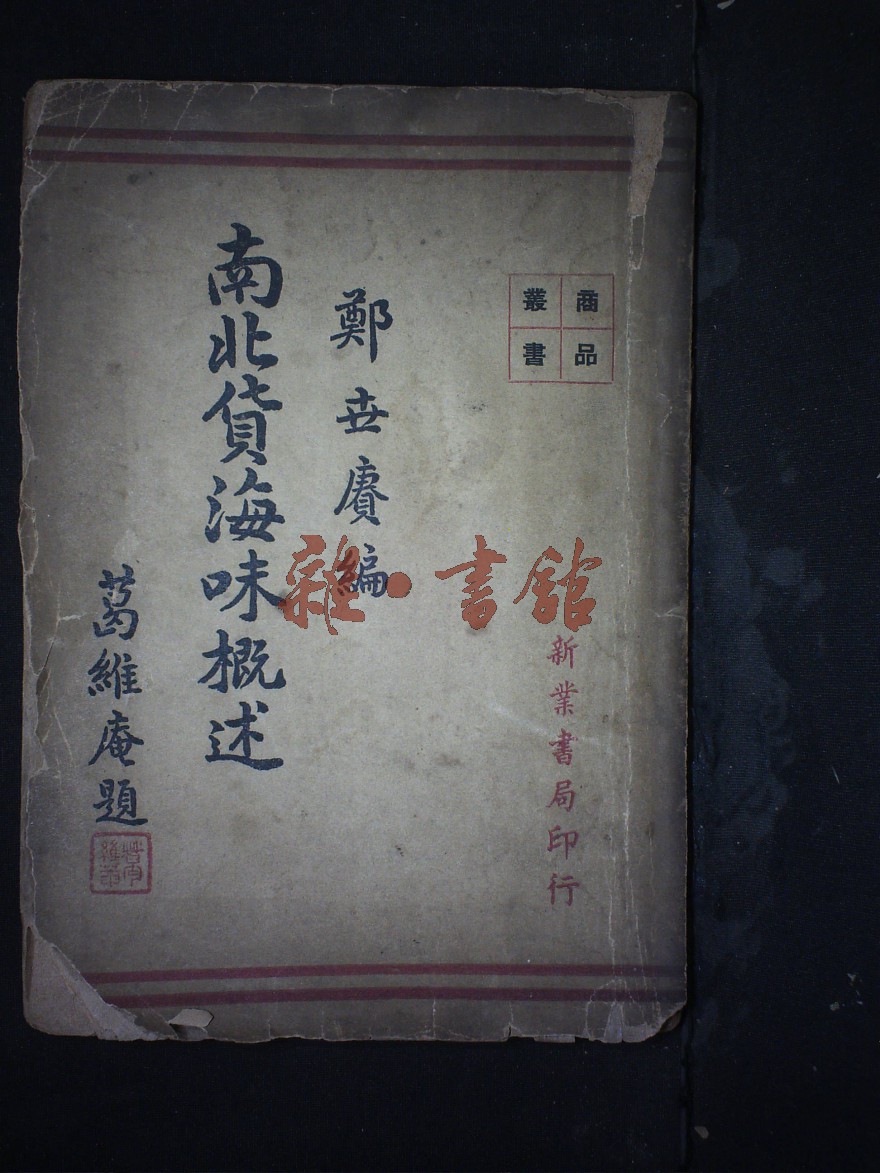 商品
叢書
新業書局印行
鄭世賡編
南北貨海味概述
葛維庵題
雜·書館